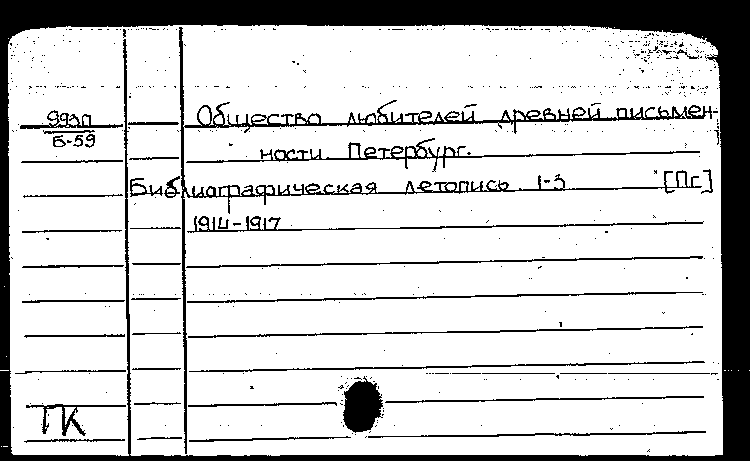 99зп Общество любителей древней письмен-
Б-59
ности. Петербург.
Библиографическая летопись 1-3 [Пг]
1914-1917
ТК